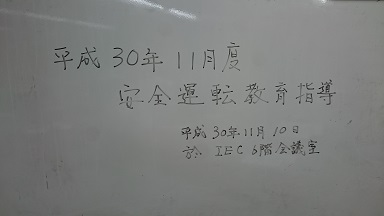 平成30年11月度
安全運転教育指導
平成30年11月10日
於 IEC 6階会議室